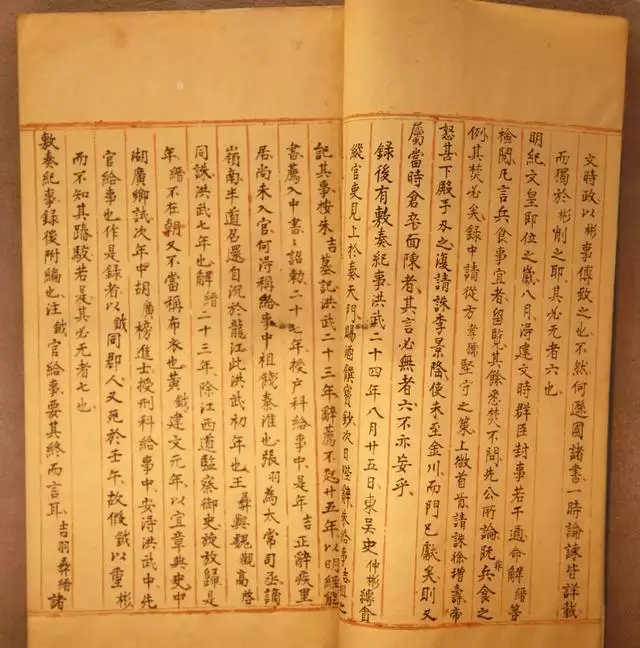 文時政以彬事傅致之也不然何遜國諸書一時論諫皆詳載
而獨於彬削之耶其必无者六也
明紀文皇即位之歲八月淂建文時群臣封事若干通命解縉等
檢閱凡言兵食事宜者留覧其餘悉焚不問先公所論旣非兵食之
例其焚必矣録中請從方孝孺堅守之策上微首肯請誅徐增壽帝
怒甚下殿手刃之復請誅李景隆使未至金川而門已獻矣則又
屬當時倉卒面陳者其言必無者六不亦妄乎
録後有敷奏紀事洪武二十四年八月廿五日東吴史仲彬縛貪
縱官吏見上於奏天門賜酒饌寳鈔次日陛辭朱給事吉祖之
記其事桉朱吉墓記洪武二十三年辭薦不起廿五年以明經能
書薦入中書二十七年授户科給事中是年吉正辭疾里
居尚未入官何淂稱給事中祖餞秦淮也張羽為太常司丞謫
嶺南半道召還自沉於龍江此洪武初年也王彝與魏觀高啓
同誅洪武七年也解縉二十三年除江西道監察御史旋放歸是
年縉不在朝又不當稱布衣也黄鉞建文元年以宜章典史中
湖廣鄉試次年中胡廣榜進士授刑科給事中安淂洪武中先
官給事也作是録者以鉞同郡人又死於壬午故假鉞以重彬
而不知其踳駁若是其必无者七也
敷奏紀事録後附編也注鉞官給事要其終而言耳吉羽彝縉諸